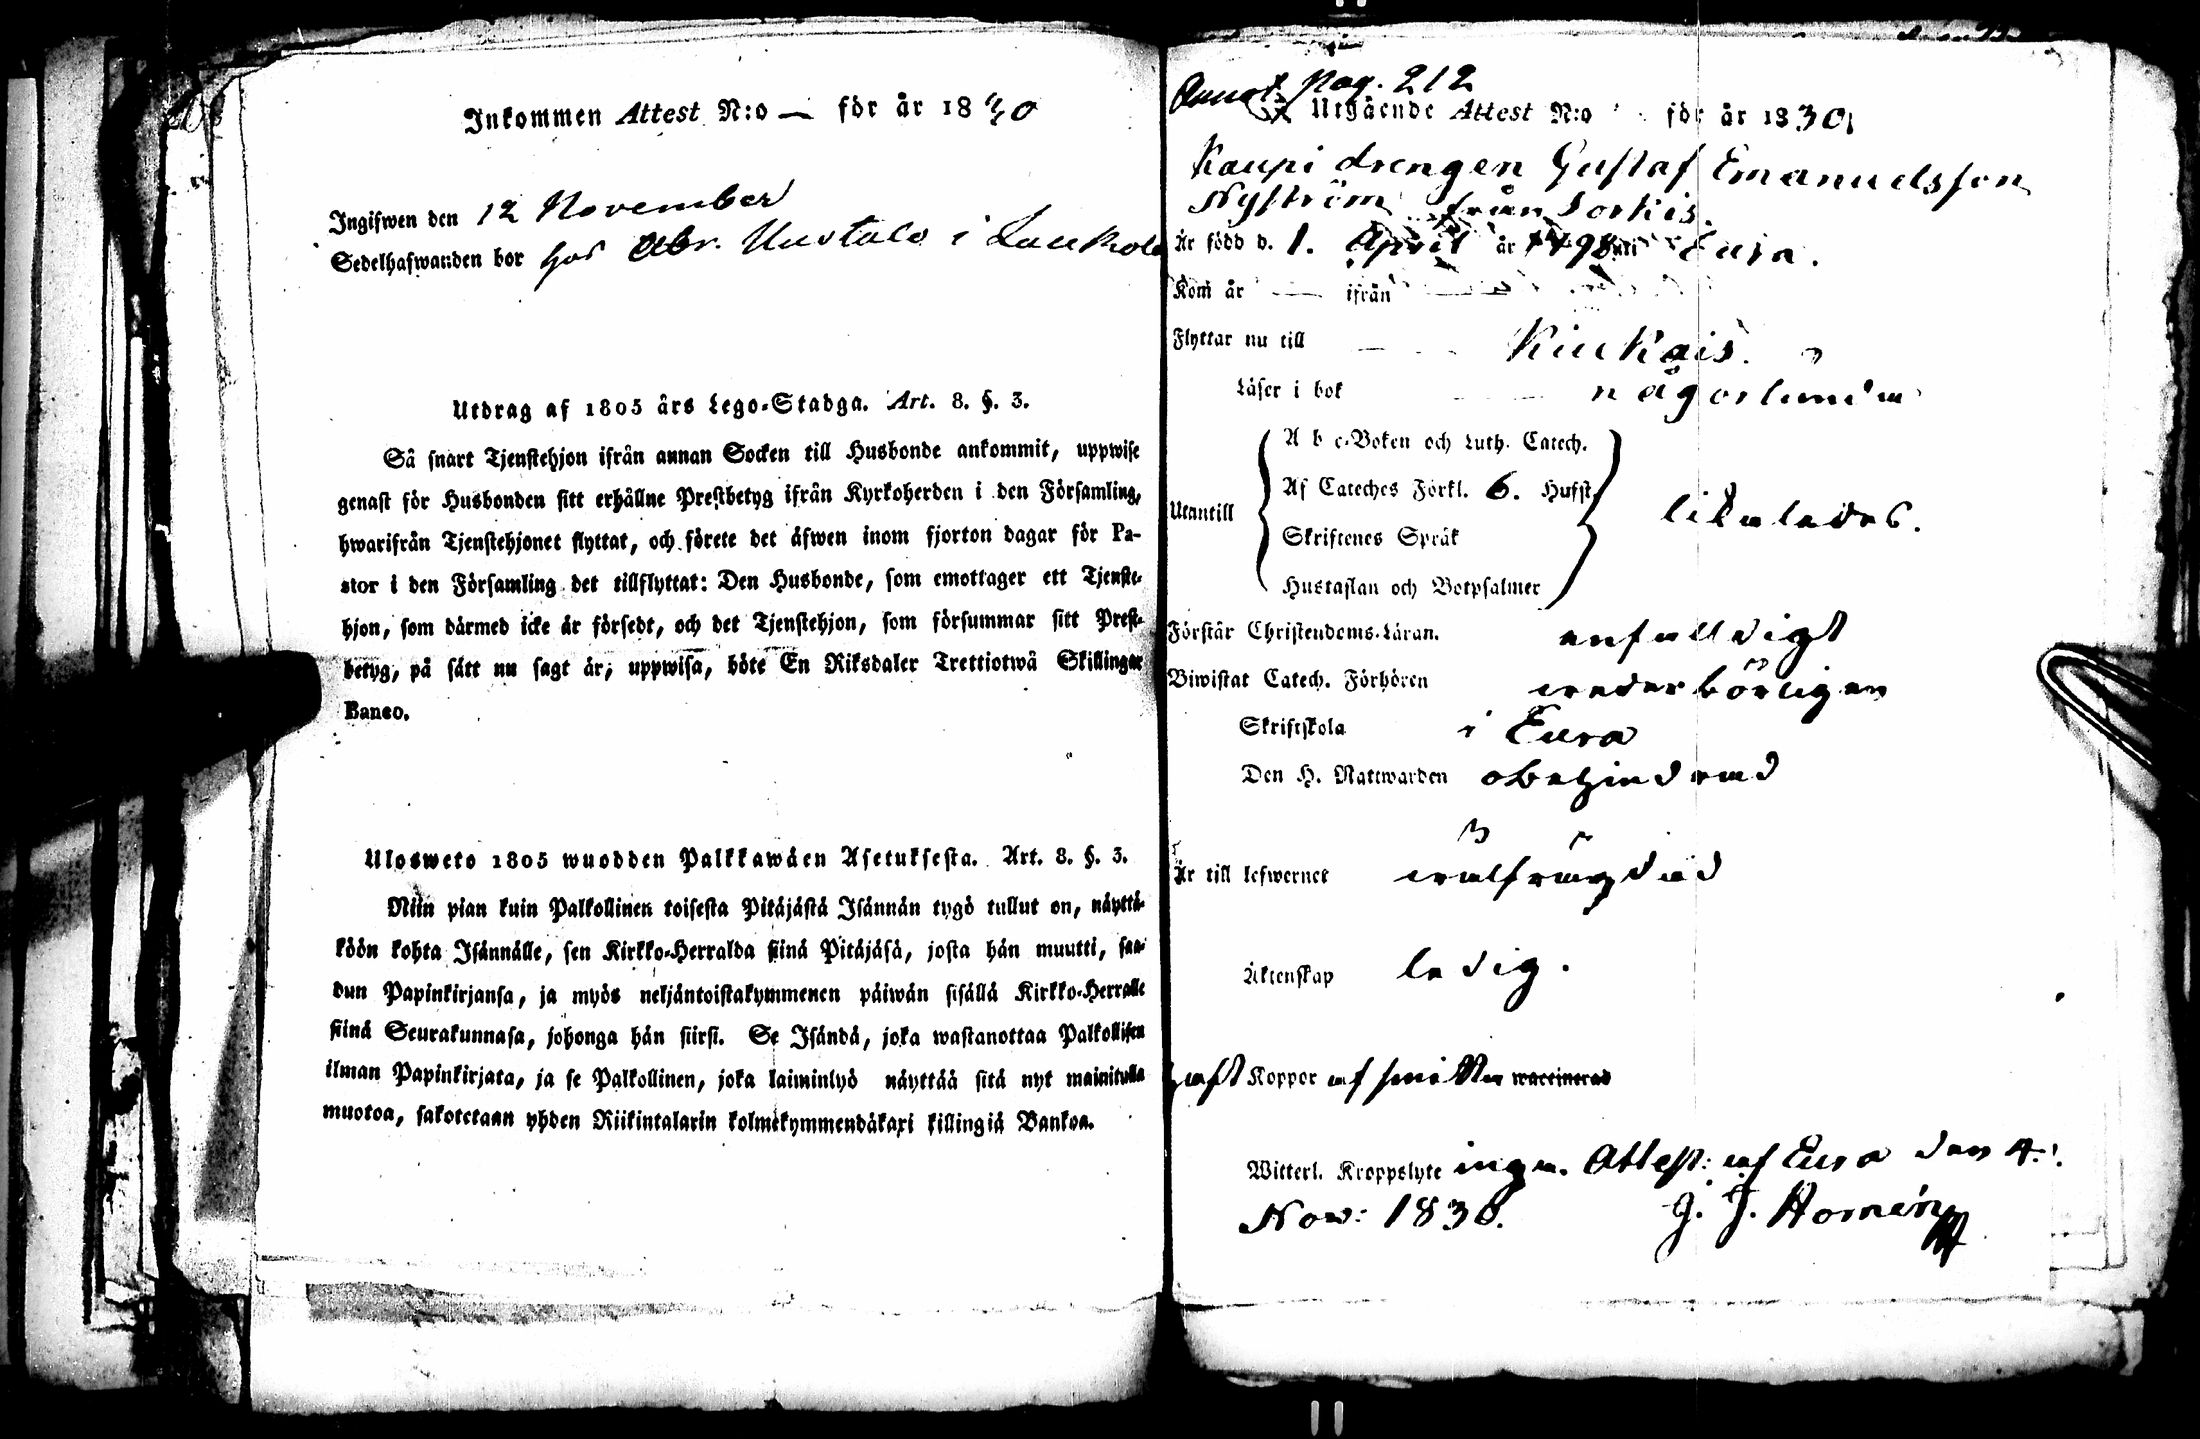 Inkommen Attest N:o — för år 1830
Ingifwen den 12 November
Sedelhafwanden bor hos Abr. Uustalo i Laukola
Utdrag af 1805 års Lego-Stadga. Art. 8. §. 3.
Så snart Tjenstehjon ifrån annan Socken till Husbonde ankommit, uppwise
genast för Husbonden sitt erhållne Prestbetyg ifrån Kyrkoherden i den Församling,
hwarifrån Tjenstehjonet flyttat, och förete det äfwen inom fjorton dagar för Pa-
stor i den Församling det tillflyttat: Den Husbonde, som emottager ett Tjenste-
hjon, som dårmed icke år försedt, och det Tjenstehjon, som försummar sitt Prest-
betyg, på sått nu sagt år, uppwisa, böte En Riksdaler Trettiotwå Skillingar
Banco.
Ulosweto 1805 wuodden Palkkawåen Asetuksesta. Art. 8. §. 3.
Niin pian kuin Palkollinen toisesta Pitåjåstå Isånnån tygö tullut on, nåyttå-
köön kohta Isånnålle, sen Kirkko-Herralda siinå Pitåjåså, josta hån muutti, saa-
dun Papinkirjansa, ja myös neljåntoistakymmenen påiwån sisållå Kirkko-Herralle
siinå Seurakunnasa, johonga hån siirsi. Se Isåndå, joka wastanottaa Palkollisen
ilman Papinkirjata, ja se Palkollinen, joka laiminlyö nåyttåå sitå nyt mainitulla
muotoa, sakotetaan yhden Riikintalarin kolmekymmendåkaxi killingiå Bankoa.
Pag. 212
Utgående Attest N:o för år 1830
Kaupi drengen Gustaf Emanuelsson
Nyström från Sorkis.
Är född d. 1. April år 1798 uti Eura.
Kom år — ifrån —
Flyttar nu till — Kiukais.
Läser i bok någorlunda
A b c-Boken och Luth. Catech.
Af Cateches Förkl. 6. Hufst.
Utantill likaledes.
Skriftenes Språk
Hustaflan och Botpsalmer
Förstår Christendoms-Läran. enfaldigt
Biwistat Catech. Förhören wederbörligen
Skriftskola i Eura
Den H. Nattwarden obehindrad
Är till lefwernet wälfrägdad
Äktenskap ledig.
haft Koppor af smitta waccinerad
Witterl. Kroppslyte inga. Attest: af Eura den 4.
Nov: 1830. J. J. Homén